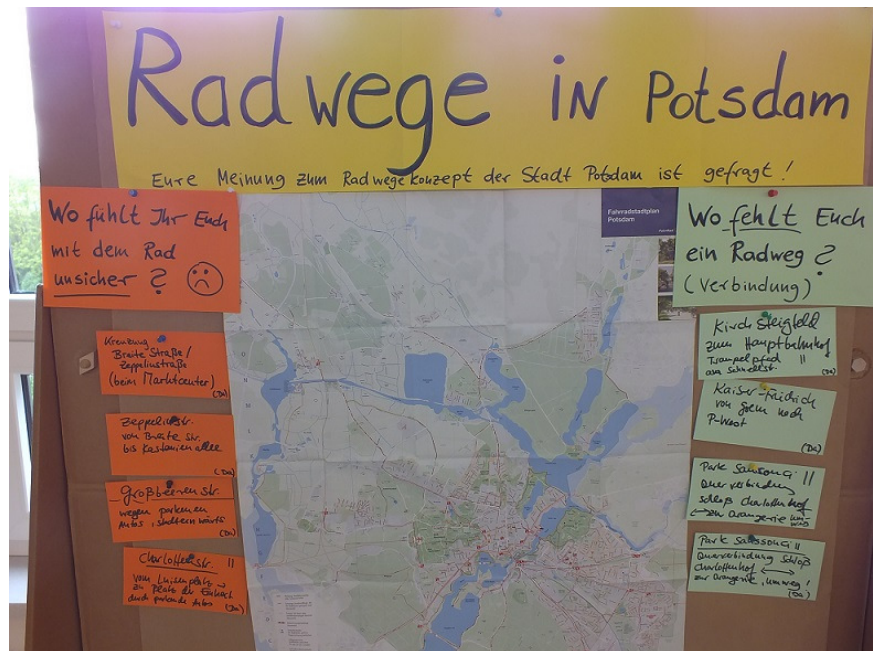 Radwege in Potsdam
Eure Meinung zum Radwegekonzept der Stadt Potsdam ist gefragt!
Wo fühlt Ihr Euch
mit dem Rad
unsicher?
Kreuzung
Breite Straße/
Zeppelinstraße
(beim Marktcenter)
(Da)
Zeppelinstr.
von Breite Str.
bis Kastanienallee
(Da)
Großbeerenstr.
wegen
Autos, stadteinwärts
(Da)
Charlottenstr. !!
vom Luisenplatz →
zu Platz der Einheit
durch parkende Autos
(Da)
Fahrradstadtplan
Potsdam
Wo fehlt Euch
ein Radweg?
(Verbindung)
Kirchsteigfeld
zum Hauptbahnhof
Trampelpfad !!
(Da)
Kaiser-Friedrich
von Golm nach
P-West
(Da)
Park Sanssouci !!
Querverbindung
Schloß Charlottenhof
zur Orangerie
Park Sanssouci !!
Querverbindung Schloß
Charlottenhof ↔
zur Orangerie, Umweg!
(Da)